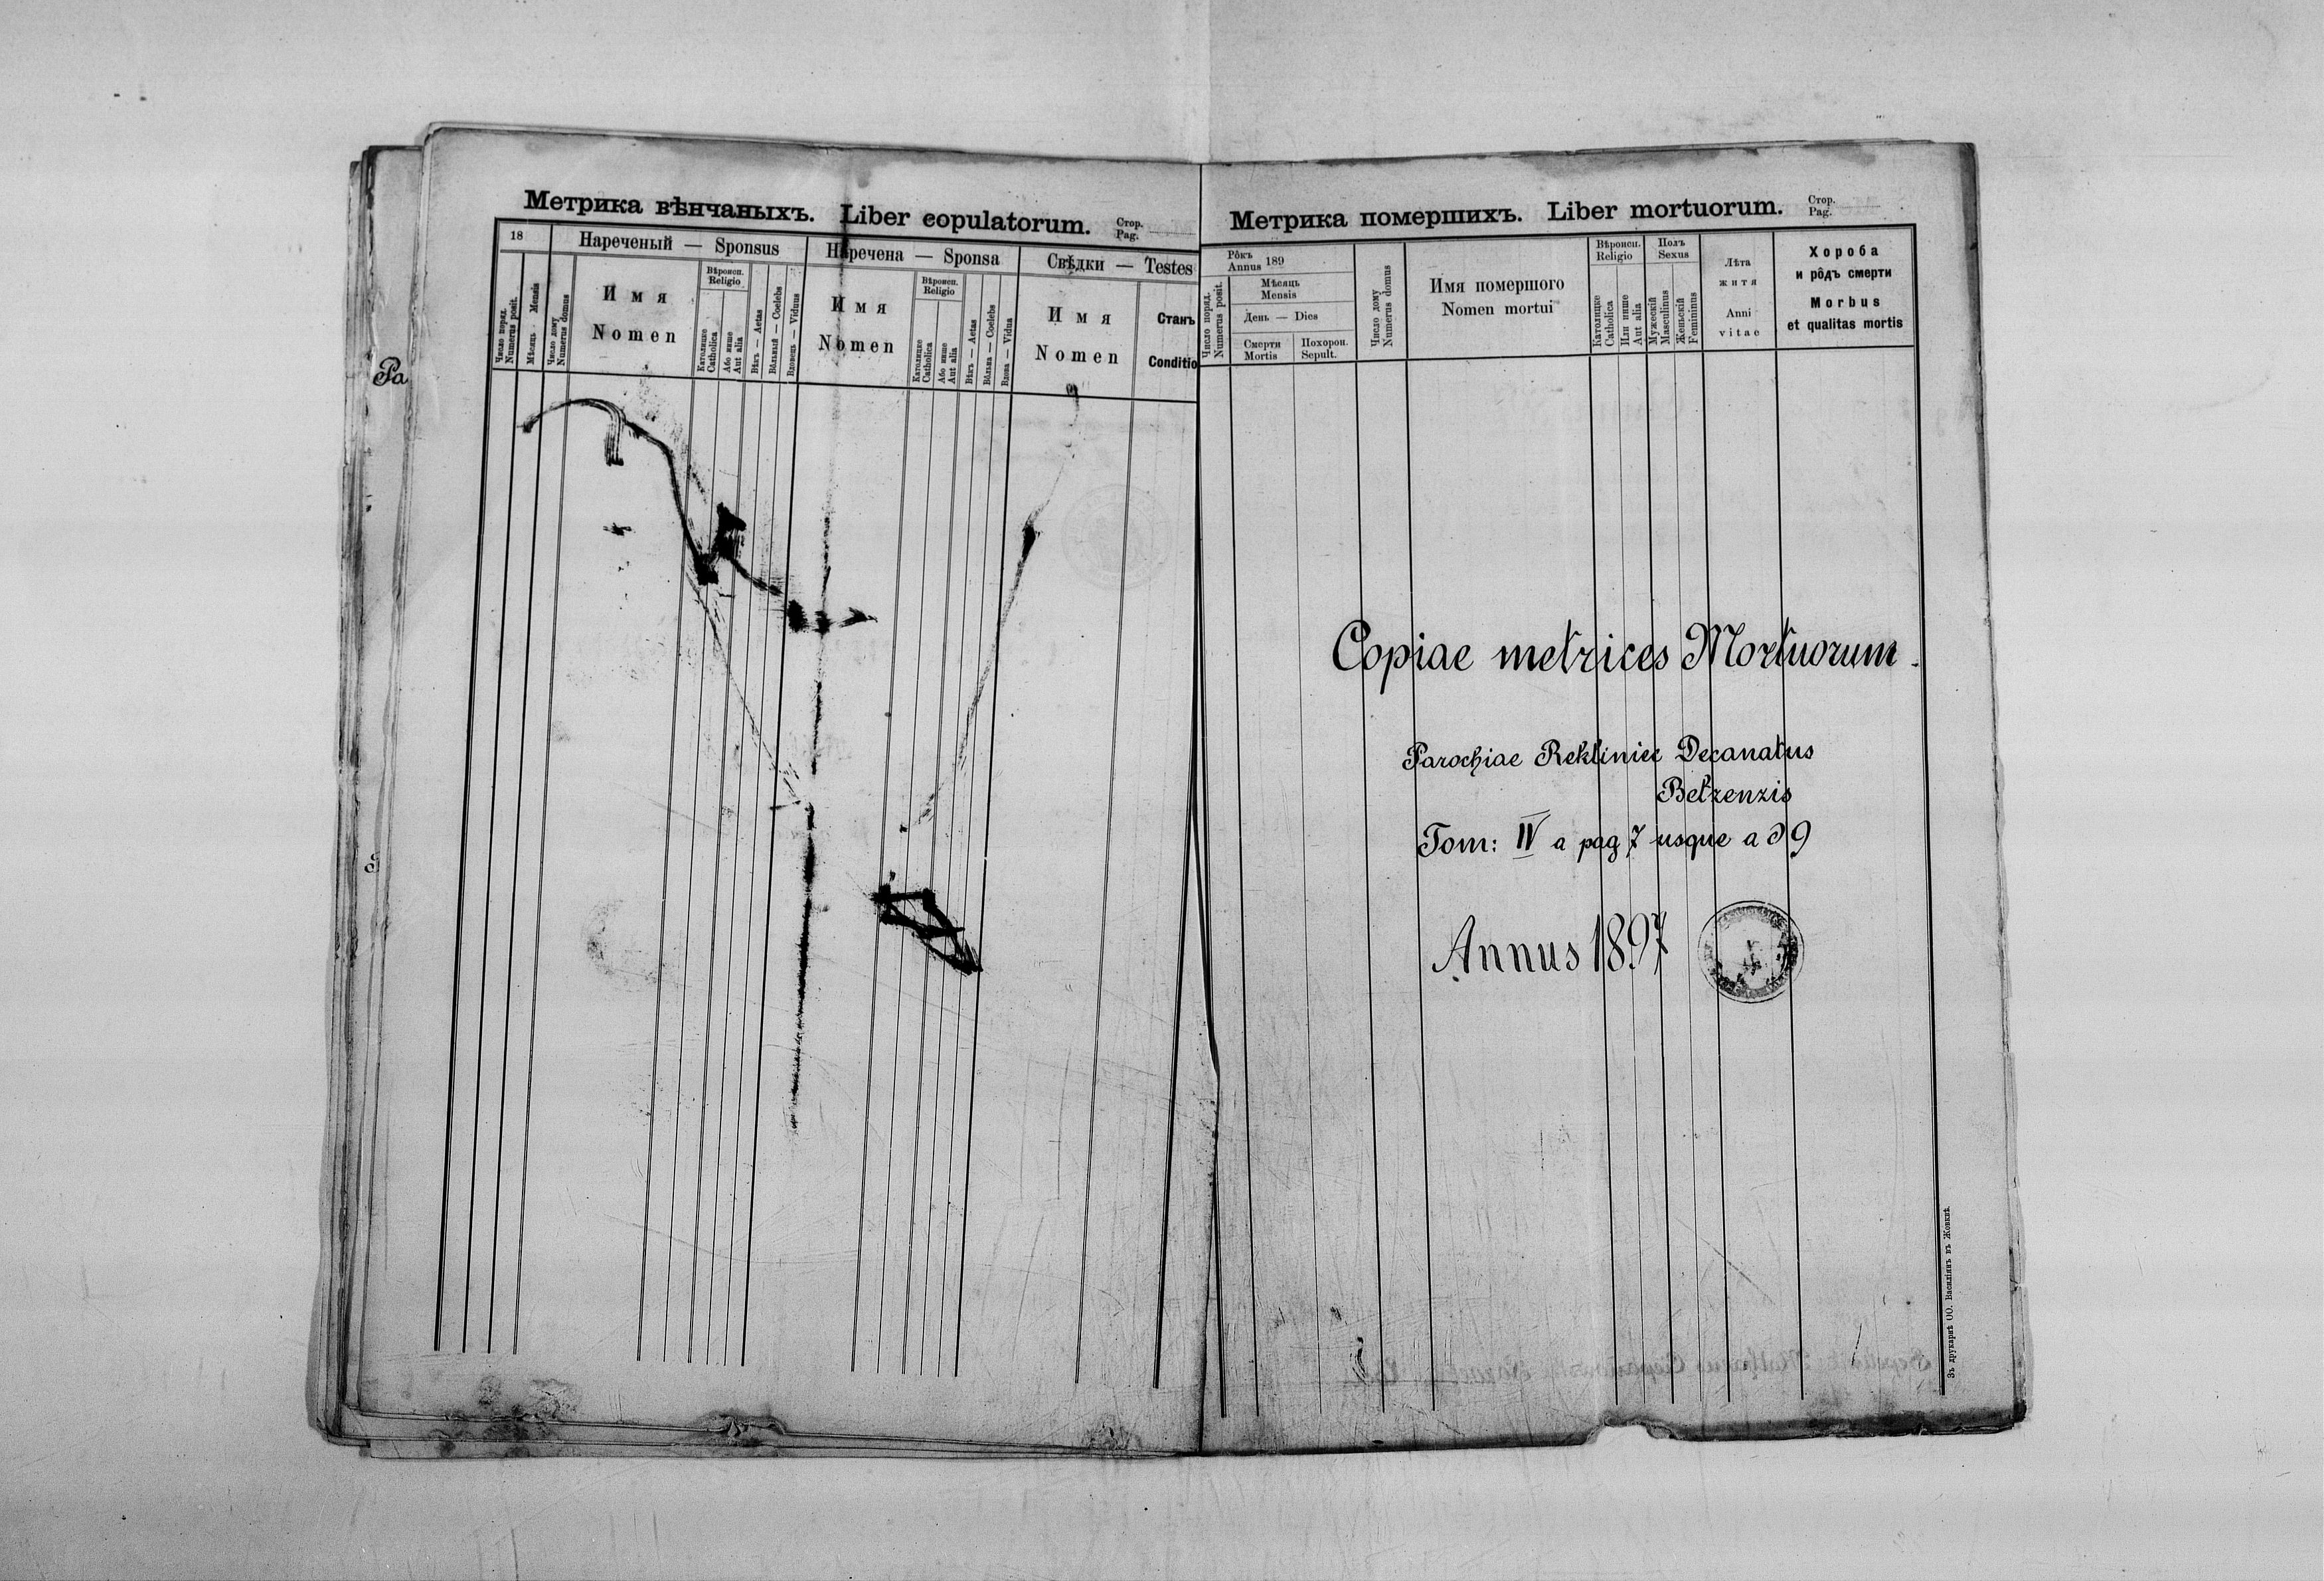 Pa
Метрика вѣнчаныхъ. Liber copulatorum. Стор.
Pag.
18
Нареченый — Sponsus
Наречена — Sponsa
Свѣдки — Testes
Число поряд.
Numerus posit.
Мѣсяць Mensis
Число дому
Numerus domus
Имя
Nomen
Вѣроисп.
Religio
Католицке
Catholica
Або инше
Aut alia
Вѣкъ — Aetas
Вôльный — Coelebs
Вдовець — Viduus
Имя
Nomen
Вѣроисп.
Religio
Католицке
Catholica
Або инше
Aut alia
Вѣкъ — Aetas
Вôльна — Coelebs
Вдова — Vidua
Имя
Nomen
Станъ
Conditio
Метрика помершихъ. Liber mortuorum. Стор.
Pag.
Число поряд.
Numerus posit.
Рôкъ
Annus 189
Мѣсяць
Mensis
День — Dies
Смерти
Mortis
Похорон.
Sepult.
Число дому
Numerus domus
Имя помершого
Nomen mortui
Вѣроисп.
Religio
Католицке
Catholica
Или инше
Aut alia
Полъ
Sexus
Мужескій
Masculinus
Женьскій
Femininus
Лѣта
житя
Anni
vitae
Хороба
и рôдъ смерти
Morbus
et qualitas mortis
Copiae metrices Mortuorum.
Parochiae Rekliniec Decanatus
Betzenzis
Tom: IV a pag 7 usque ad 9
Annus 1897
Зъ друкарнѣ ОО. Василіянъ въ Жовквѣ.